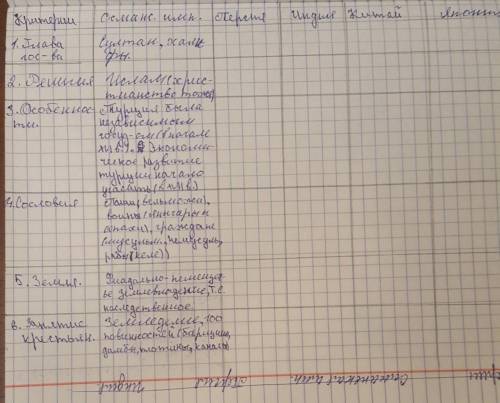 Критерии Османс. имп. Персия Индия Китай Япония
1. Глава
гос-ва
Султан, хали
фы.
2. Религия
Ислам (хрис-
тианство тоже)
3. Особеннос-
ти.
Турция была
независимым
госуд-ом (в начале
Экономи
ческое развитие
турции начало
угасать (в XVII в.)
4. Сословия
(вельможи),
воины (янычары и
сипахи), граждане
(мусульм., немусульм,
рабы (келе))
5. Земля.
Феодально-помещичь
е землевладение, т.е.
наследственное
6. Занятие
крестьян.
Земледелие, 100
повинностей (барщина,
дамбы, плотины, каналы
Индия Персия Османская имп.